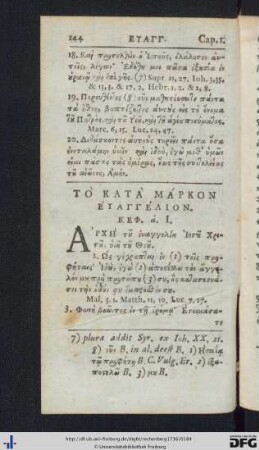 144 ΕΥΑΓΓ. Cap. 1.
18. Καὶ προσελθὼν ὁ Ἰησοῦς, ἐλάλησεν αὐ-
τοῖς λέγων· Ἐδόθη μοι πᾶσα ἐξουσία ἐν
Matth. 11, 27. Joh. 3, 35.
& 13, 3. & 17, 2. Hebr. 1, 2. & 2, 8.
19. Πορευθέντες μαθητεύσατε πάντα
τὰ ἔθνη, βαπτίζοντες αὐτοὺς εἰς τὸ ὄνομα
Marc. 6, 15. Luc. 24, 47.
20. Διδάσκοντες αὐτοὺς τηρεῖν πάντα ὅσα
ἐνετειλάμην ὑμῖν
εἰμι πάσας τὰς ἡμέρας, ἕως τῆς συντελείας
τοῦ αἰῶνος. Ἀμήν.
ΤΟ ΚΑΤΑ ΜΑΡΚΟΝ
ΕΥΑΓΓΕΛΙΟΝ.
ΚΕΦ. ά. I.
ΑΡΧΗ τοῦ εὐαγγελίου Ἰησοῦ Χρι-
στοῦ, υἱοῦ τοῦ Θεοῦ.
2. Ὡς γέγραπται ἐν (1) τοῖς προ-
φήταις· Ἰδοὺ, ἐγὼ (2) ἀποστέλλω τὸν ἄγγε-
λόν μου πρὸ προσώπου (3) σου, ὃς κατασκευά-
σει τὴν ὁδόν σου ἔμπροσθέν σου.
Mal. 3, 1. Matth. 11, 10. Luc. 7, 27.
3. Φωνὴ βοῶντος ἐν τῇ ἐρήμῳ· Ἑτοιμάσα-
τε
7) plura addit Syr. ex Joh. XX, 21.
8) οὖν B. in al. deest B. 1) Ἡσαΐᾳ
τῷ προφήτῃ B. C. Vulg. Er. 2) ἐξα-
ποστελῶ B. 3) μου B.
http://dl.ub.uni-freiburg.de/diglit/reichenberg1736/0184
© Universitätsbibliothek Freiburg
gefördert durch die DFG